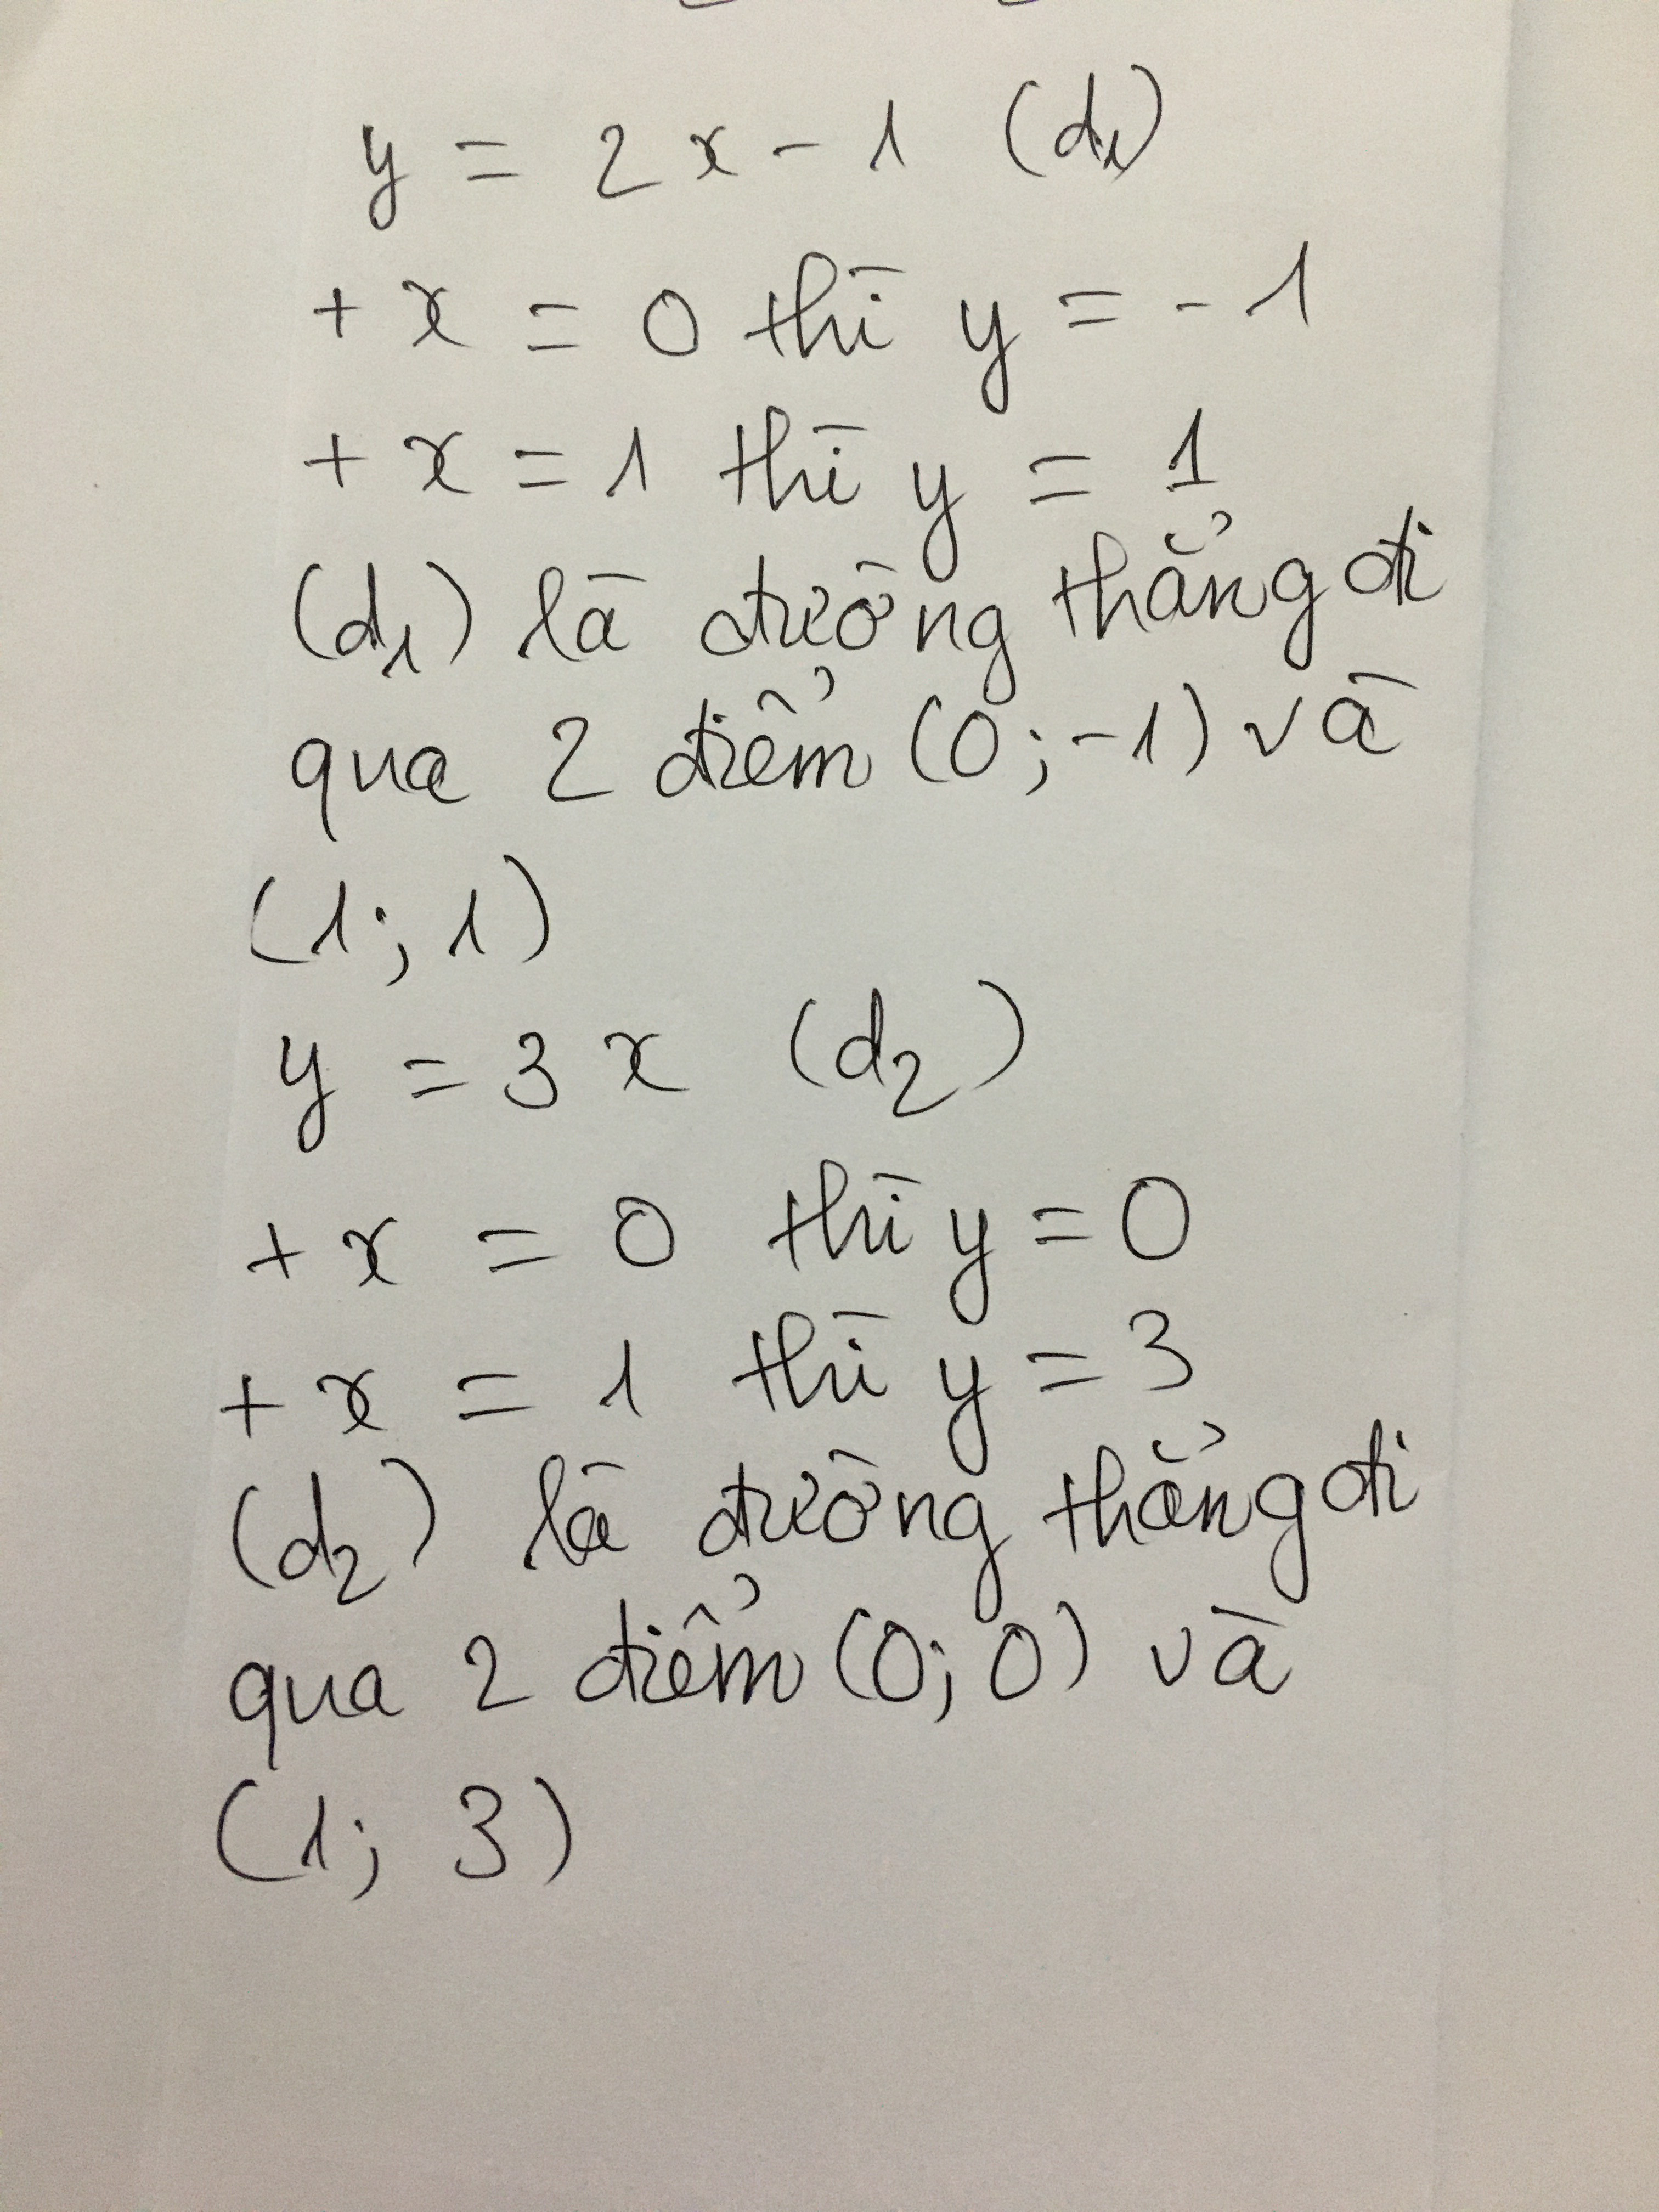 y = 2x - 1 (d₁)
+ x = 0 thì y = - 1
+ x = 1 thì y = 1
(d₁) là đường thẳng đi
qua 2 điểm (0 ; -1) và
(1 ; 1)
y = 3x (d₂)
+ x = 0 thì y = 0
+ x = 1 thì y = 3
(d₂) là đường thẳng đi
qua 2 điểm (0; 0) và
(1; 3)